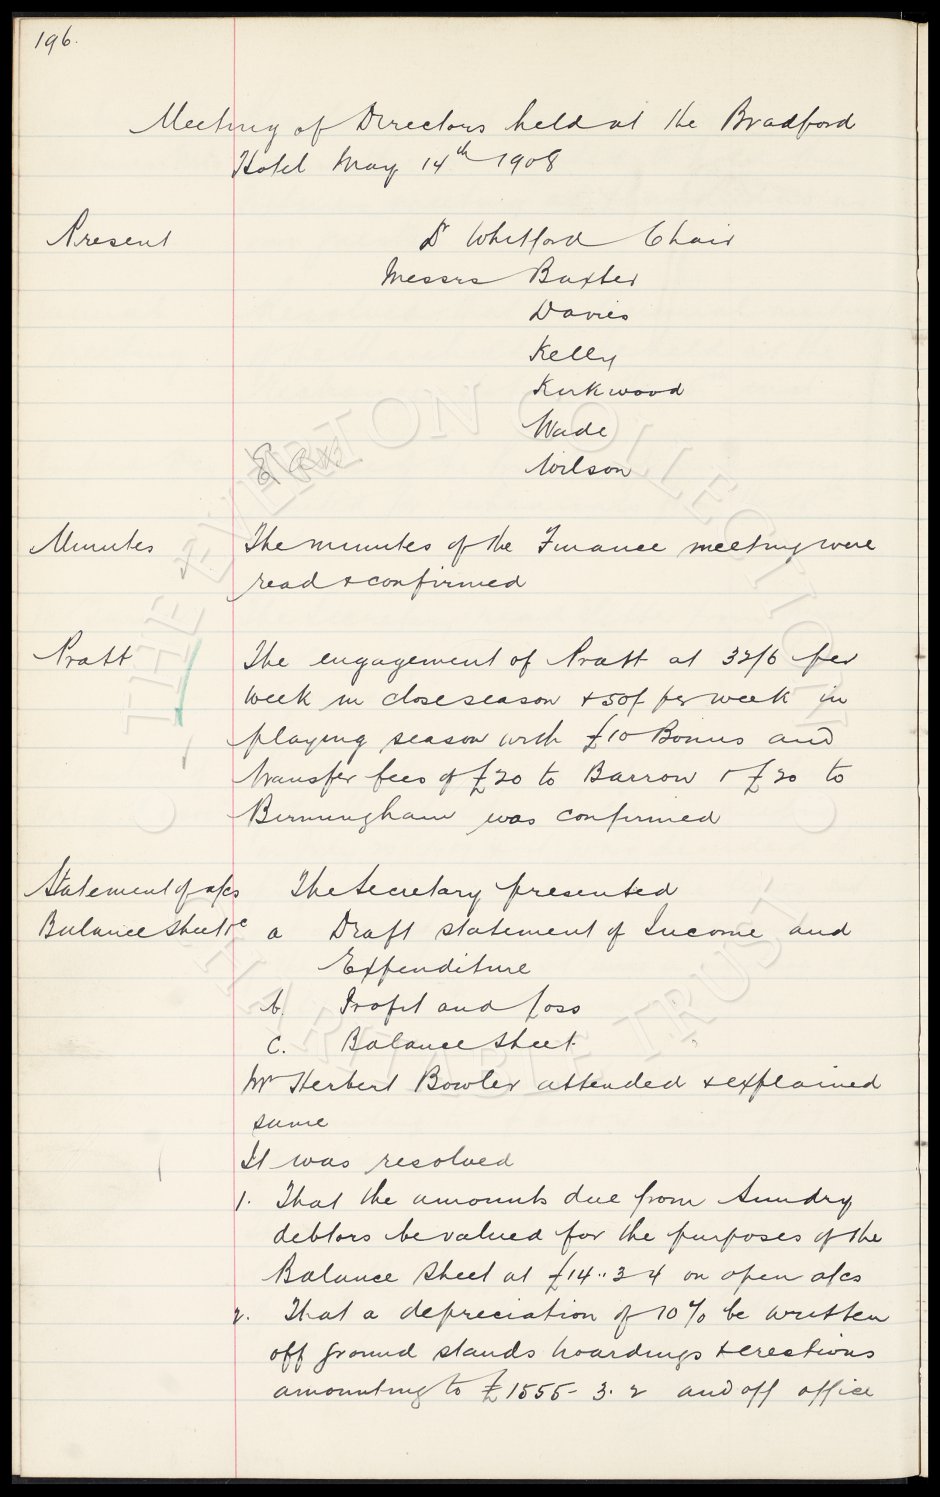 196.
Meeting of Directors held at the Bradford
Hotel May 14th 1908
Present Dr Whitford Chair
Messrs Baxter
Davies
Kelly
Kirkwood
Wade
Wilson
Minutes The minutes of the Finance meeting were
read & confirmed
Pratt The engagement of Pratt at 32/6 per
week in close season & 50/ per week in
playing season with £10 Bonus and
transfer fees of £20 to Barrow & £20 to
Birmingham was confirmed
Statement of a/cs The Secretary presented
Balance Sheet &c a Draft statement of Income and
Expenditure
b. Profit and Loss
c. Balance Sheet.
Mr Herbert Bowler attended & explained
same
It was resolved
1. That the amounts due from Sundry
debtors be valued for the purposes of the
Balance Sheet at £14..3 4 on open a/cs
2. That a depreciation of 10% be written
off ground stands hoardings & erections
amounting to £1555-3.2 and off office
THE EVERTON COLLECTION
CHARITABLE TRUST